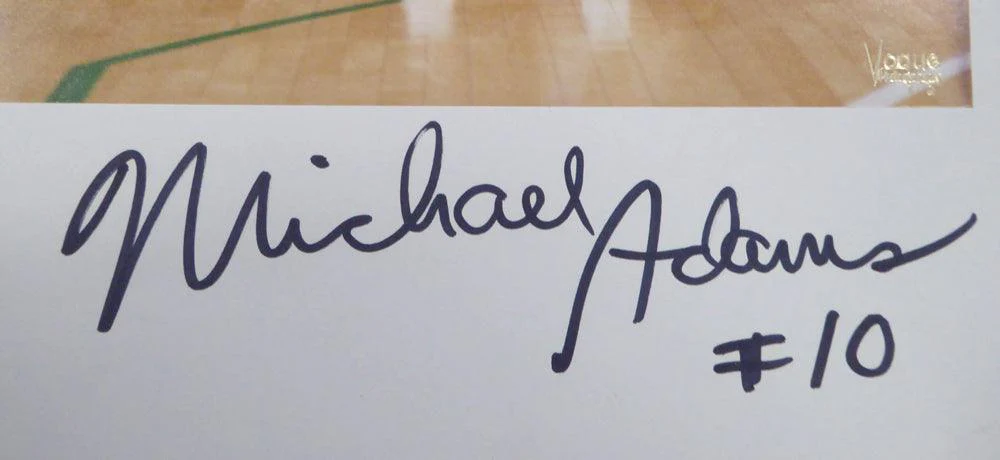 Vogue
Michael Adams
#10